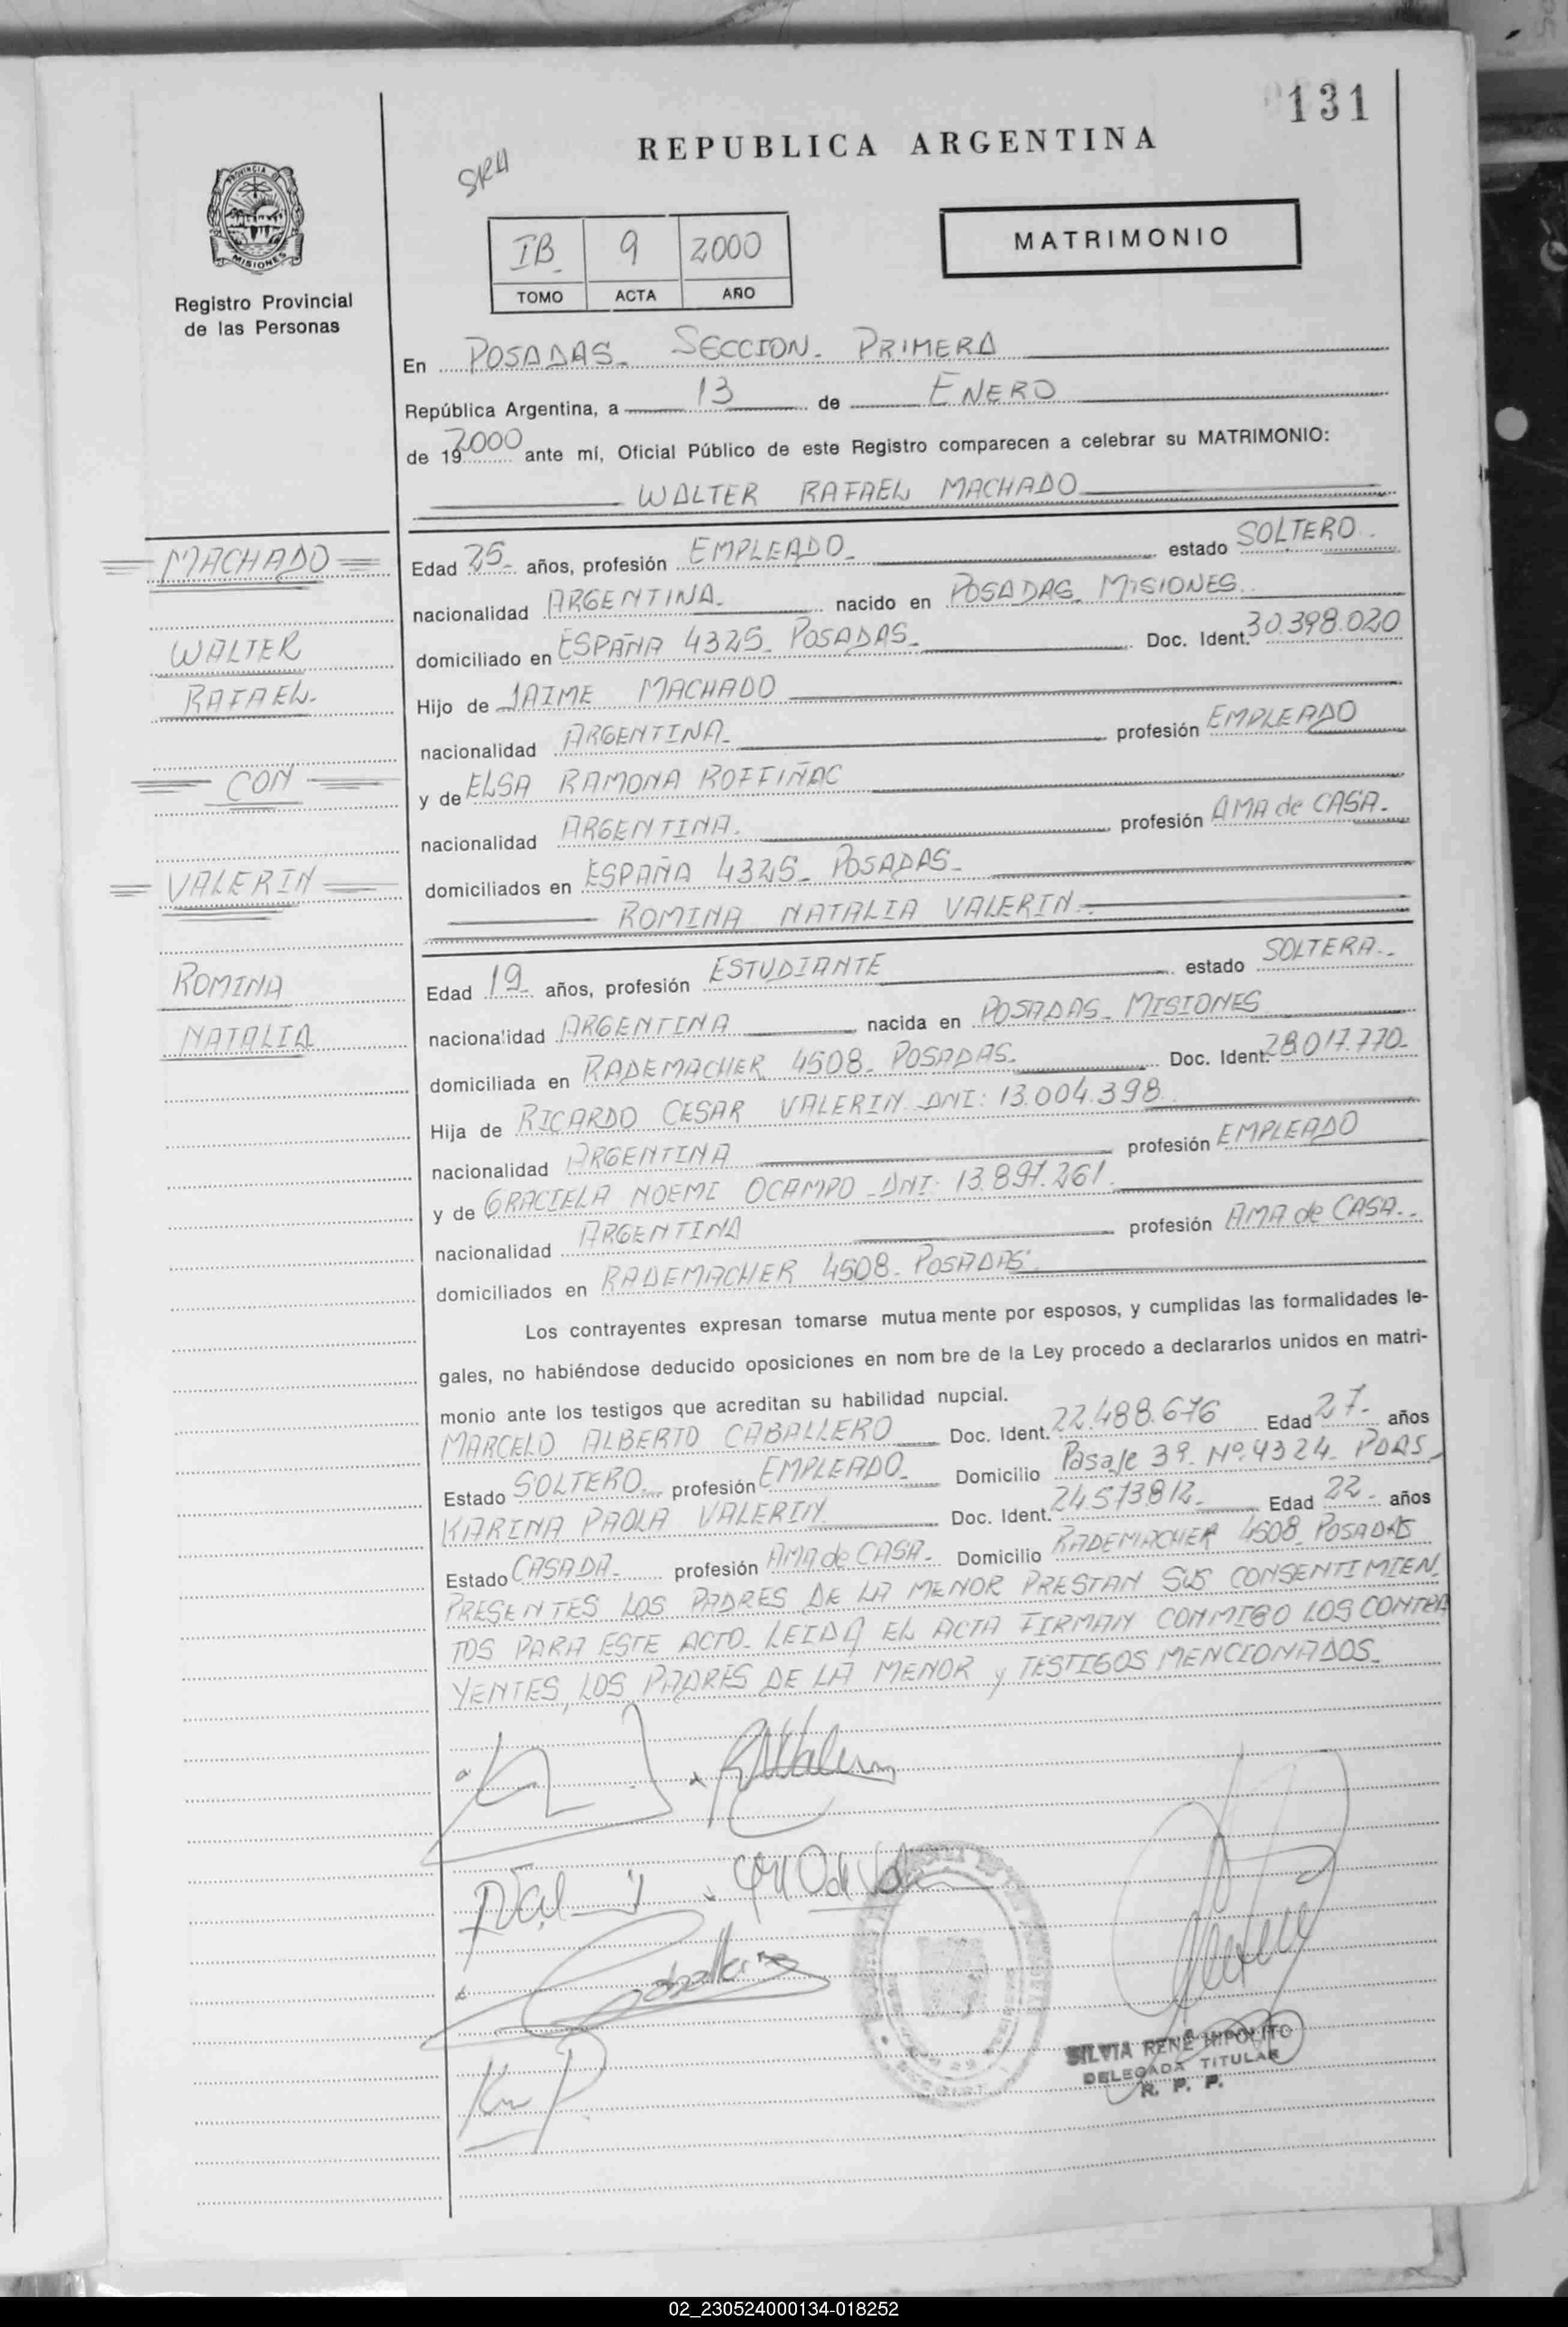 131
REPUBLICA ARGENTINA
SRA
PROVINCIA DE
MISIONES
Registro Provincial
de las Personas
IB 9 2000
TOMO ACTA AÑO
MATRIMONIO
En POSADAS - SECCION - PRIMERA
República Argentina, a 13 de ENERO
de 19 2000 ante mí, Oficial Público de este Registro comparecen a celebrar su MATRIMONIO:
WALTER RAFAEL MACHADO
MACHADO
WALTER
RAFAEL.
CON
VALERIN
ROMINA
NATALIA
Edad 25- años, profesión EMPLEADO- estado SOLTERO-
nacionalidad ARGENTINA- nacido en POSADAS- MISIONES
domiciliado en ESPAÑA 4325- POSADAS- Doc. Ident. 30.398.020
Hijo de JAIME MACHADO
nacionalidad ARGENTINA- profesión EMPLEADO
y de ELSA RAMONA ROFFIÑAC
nacionalidad ARGENTINA- profesión AMA de CASA-
domiciliados en ESPAÑA 4325- POSADAS-
ROMINA NATALIA VALERIN-
Edad 19- años, profesión ESTUDIANTE estado SOLTERA-
nacionalidad ARGENTINA nacida en POSADAS- MISIONES
domiciliada en RADEMACHER 4508- POSADAS- Doc. Ident. 28.017.770-
Hija de RICARDO CESAR VALERIN- DNI: 13.004.398
nacionalidad ARGENTINA profesión EMPLEADO
y de GRACIELA NOEMI OCAMPO- DNI: 13.897.261
nacionalidad ARGENTINA profesión AMA de CASA-
domiciliados en RADEMACHER 4508- POSADAS
Los contrayentes expresan tomarse mutuamente por esposos, y cumplidas las formalidades le-
gales, no habiéndose deducido oposiciones en nombre de la Ley procedo a declararlos unidos en matri-
monio ante los testigos que acreditan su habilidad nupcial.
MARCELO ALBERTO CABALLERO Doc. Ident. 22.488.676 Edad 27- años
Estado SOLTERO- profesión EMPLEADO- Domicilio Pasaje 39- Nº 4324- PDAS
KARINA PAOLA VALERIN Doc. Ident. 24.573.812- Edad 22- años
Estado CASADA- profesión AMA de CASA- Domicilio RADEMACHER 4508- POSADAS
PRESENTES LOS PADRES DE LA MENOR PRESTAN SUS CONSENTIMIEN-
TOS PARA ESTE ACTO- LEIDA EL ACTA FIRMAN CONMIGO LOS CONTRA
YENTES, LOS PADRES DE LA MENOR y TESTIGOS MENCIONADOS-
Caballero
SILVIA RENÉ HIPOLITO
DELEGADA TITULAR
R. P. P.
02_230524000134-018252